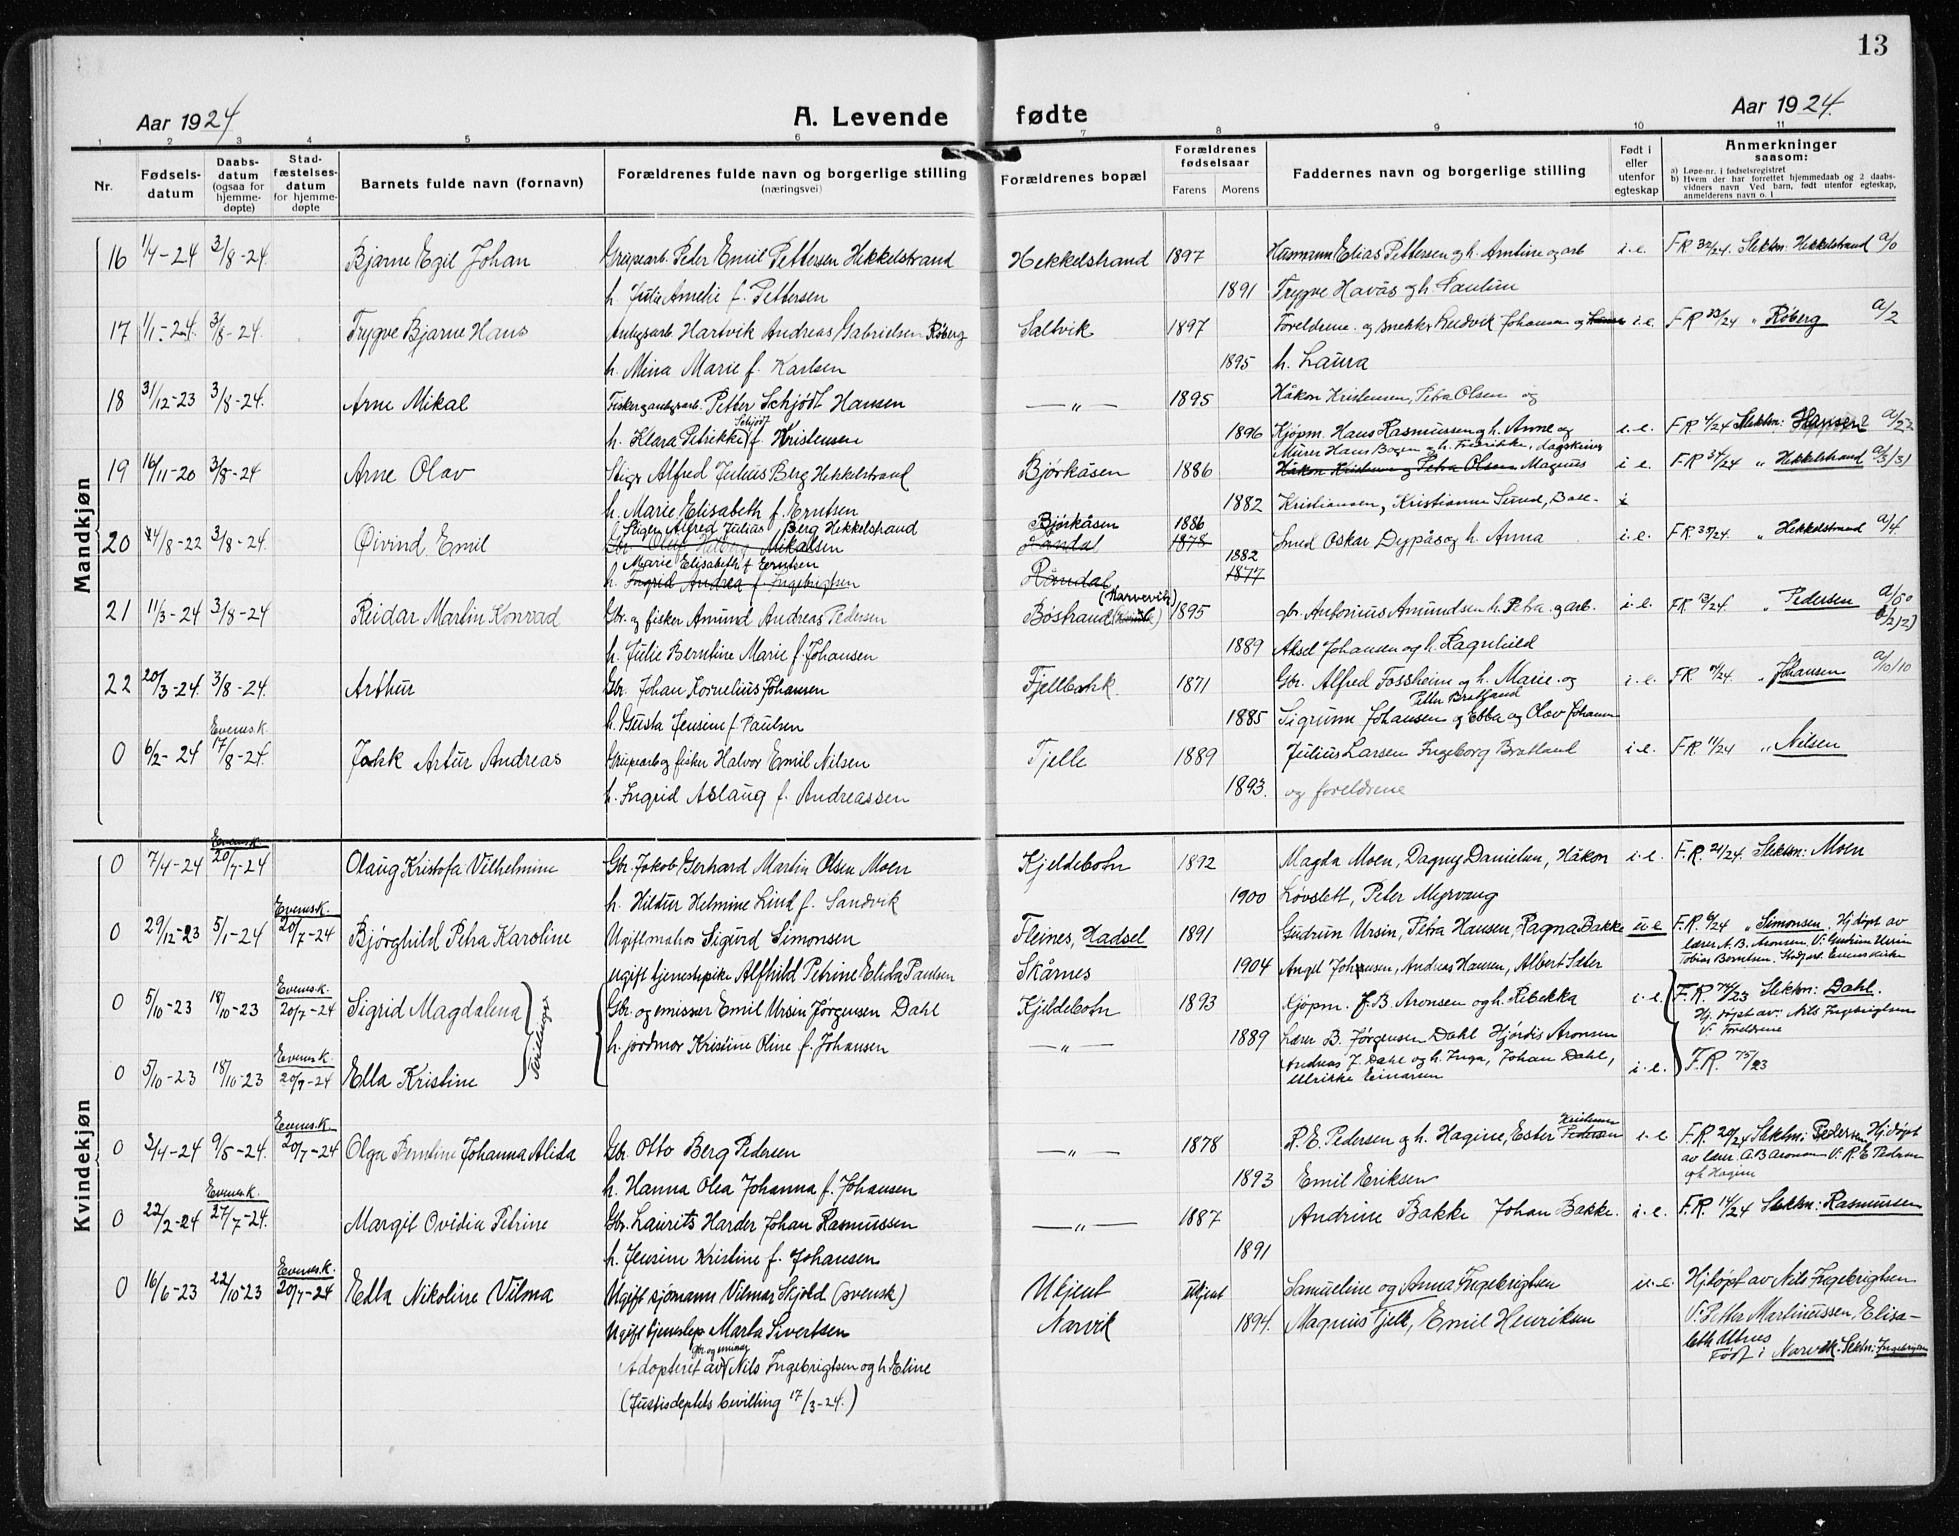 13
Aar 1924
A. Levende fødte
Aar 1924.
1 2 3 4 5 6 7 8 9 10 11
Nr.
Fødselsdatum
Daabsdatum (ogsaa for hjemmedøpte)
Stadfæstelsesdatum for hjemmedøpte
Barnets fulde navn (fornavn)
Forældrenes fulde navn og borgerlige stilling (næringsvei)
Forældrenes bopæl
Forældrenes fødselsaar
Farens Morens
Faddernes navn og borgerlige stilling
Født i eller utenfor egteskap
Anmerkninger saasom:
a) Løpe-nr. i fødselsregistret
b) Hvem der har forrettet hjemmedaab og 2 daabsvidners navn Ved barn, født utenfor egteskap, anmelderens navn o. l
Mandkjøn
16 1/4-24 3/8-24 Bjarne Egil Johan Grupearb. Peder Emil Pettersen Hekkelstrand Hekkelstrand 1897 Husmann Elias Pettersen og h. Arntine og arb i.e. F R 32/24. Slektsn: Hekkelstrand a/0
h. Julie Amelie f. Pettersen 1891 Trygve Havås og h. Pauline
17 1/1-24. 3/8-24. Trygve Bjarne Hans Anlegsarb Hartvik Andreas Gabrielsen Røberg Saltvik 1897 Foreldrene og snekker Ludvik Johansen og i.e. F R 33/24 " Røberg a/2
h. Mina Marie f. Karlsen 1895 h. Laura
18 31/12-23 3/8-24. Arne Mikal Fisker og anlegsarb. Petter Schjødt Hansen —„— 1895 Håkon Kristensen, Petra Olsen og
h. Klara Petrikke Schjødt f. Kristensen 1896 Kjøpm. Hans Rasmussen og h. Anne og i.e. F R 4/24 Slektsn: Hansen
Murer Hans Bogen og h. Fredrikke, dagskriver
19 16/11-20 3/8-24 Arne Olav Stiger Alfred Julius Berg Hekkelstrand Bjørkåsen 1886 Håkon Kristensen og Petra Olsen Magnus i e. F R 34/24 " Hekkelstrand a/3/3)
h. Marie Elisabeth f. Erntsen 1882 Kristiansen, Kristianna Sund, Ball-
Stiger Alfred Julius Berg Hekkelstrand Bjørkåsen 1886
20 24/8-22 3/8-24. Øivind Emil Gbr. Olaf Halvor Mikalsen 1878 Smed Oskar Dypås og h. Anna i.e. F R 35/24. " Hekkelstrand a/4.
Marie Elisabeth f Erntsen 1882
h. Ingrid Andrea f. Ingebrigtsen Råndal 1877
21 11/3-24 3/8-24 Reidar Martin Konrad Gbr. og fisker Amund Andreas Pedersen Bøstrand 1895 gbr. Antonius Amundsen h. Petra og arb. i.e. FR 13/24. " Pedersen
h. Julie Berntine Marie f. Johansen 1889 Aksel Johansen og h. Ragnhild
22 20/3-24. 3/8-24. Arthur Gbr. Johan Kornelius Johansen Fjellbakk 1871 Gbr. Alfred Fossheim og h. Marie og i.e. F R "/24. " Johansen a/10/10
h. Gusta Jensine f. Paulsen 1885 Sigrunn Johansen og Ebba og Olav Johansen
Evenes K.
0 6/2-24 17/8-24. Jakk Artur Andreas Grupearb og fisker Halvor Emil Nilsen Tjelle 1889 Julius Larsen Ingeborg Bratland i-e. F. R. 11/24 " Nilsen
h. Ingrid Aslaug f. Andreassen 1893. og foreldrene
Kvindekjøn
Evenes k.
0 7/4-24 20/7-24 Olaug Kristofa Vilhelmine Gbr. Jakob Gerhard Martin Olsen Moen Kjeldebotn 1892 Magda Moen, Dagny Danielsen, Håkon i-e. F. R. 21/24. Slektsn: Moen
h. Hildur Helmine Lind f. Sandvik 1900 Løvslett, Peter Mervang
Evenes K.
0 29/12-23 5/1-24 20/7-24 Bjørghild Petra Karoline Ugift mahos Sigurd Simonsen Fleines, Hadsel 1891 Gudrun Ursin, Petra Hansen, Ragna Bakke u-e F. R. 6/24 " Simonsen. Hj.døpt av
lærer A. B. Aronsen. V: Gudrun Ursin
ugift tjenestepike Alfhild Petrine Elida Paulsen Skårnes 1904 Angel Johansen, Andreas Hansen, Albert Sæter Tobias Berntsen. Evenes kirke
Evenes K.
0 5/10-23 18/10-23 20/7-24 Sigrid Magdalena Gbr. og emissær Emil Ursin Jørgensen Dahl Kjeldebotn 1893 Kjøpm. J. B. Aronsen og h. Rebekka i-e. F. R 74/23 Slektsn: Dahl.
Tvillinger
Hj. døpt av: Nils Ingebrigtsen
V. Foreldrene
h. jordmor Kristine Oline f. Johansen —„— 1889 Lærer B. Jørgensen Dahl Hjørdis Aronsen
Evenes K.
0 5/10-23 18/10-23 20/7-24 Ella Kristine Andreas J. Dahl og h. Inga, Johan Dahl, Ulrikke Einarsen i-e. F. R. 75/23
Evenes K.
0 3/4-24 9/5-24. 20/7-24 Olga Berntine Johanna Alida Gbr. Otto Berg Pedersen —„— 1878 P. E. Pedersen og h. Hagine, Ester Pedersen i-e F. R. 20/24 Slektsn: Pedersen, Hj.døpt
av lærer. A. B Aronsen V: R. E Pedersen
og h Hagine
h. Hanna Olea Johanna f. Johansen 1893 Emil Eriksen
Evenes K.
0 22/2-24 27/7-24. Margit Ovidia Petrine Gbr. Laurits Harder Johan Rasmussen —„— 1887 Andrine Bakke Johan Bakke. i-e. F. R. 14/24 Slektsn: Rasmussen
h. Jensine Kristine f. Johansen 1891
Evenes K.
0 16/6-23 22/10-23 20/7-24 Ella Nikoline Vilma Ugift sjømann Vilmar Skjold (svensk) Ukjent Ukjent Samueline og Anna Ingebrigtsen u-e Hj.døpt av Nils Ingebrigtsen
Ugift tjenestep Marta Sivertsen Narvik 1894. Magnus Tjelle, Emil Henriksen V: Petter Martinussen, Elisabeth Utnes
Født i Narvik. Slektsn: Ingebrigtsen
Adopteret av gbr og emissær Nils Ingebrigtsen og h. Eline
(Justisdeptets bevilling 17/3-24.)